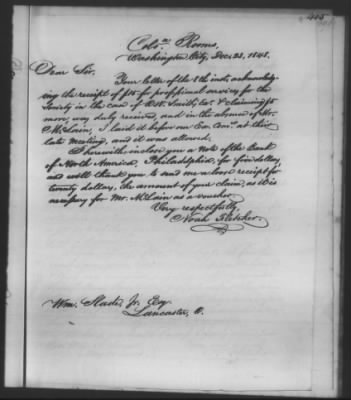 405
Colo.n Rooms,
Washington City, Dec. 23, 1848.
Dear Sir.
Your letter of the 8th inst; acknowledg-
ing the receipt of $15 for professional services for the
Society in the case of W. Smith, Exr. & claiming $5
more, was duly received, and in the absence of Mr.
McLain, I laid it before our Ex. Com.ee at their
late Meeting, and it was allowed.
I herewith inclose you a note of the Bank
of North America, Philadelphia, for five dollars,
and will thank you to send me a loose receipt for
twenty dollars, the amount of your claim, as it is
necessary for Mr. McLain as a voucher.
Very respectfully,
Noah Fletcher.
Wm. Slade, Jr. Esq
Lancaster, O.